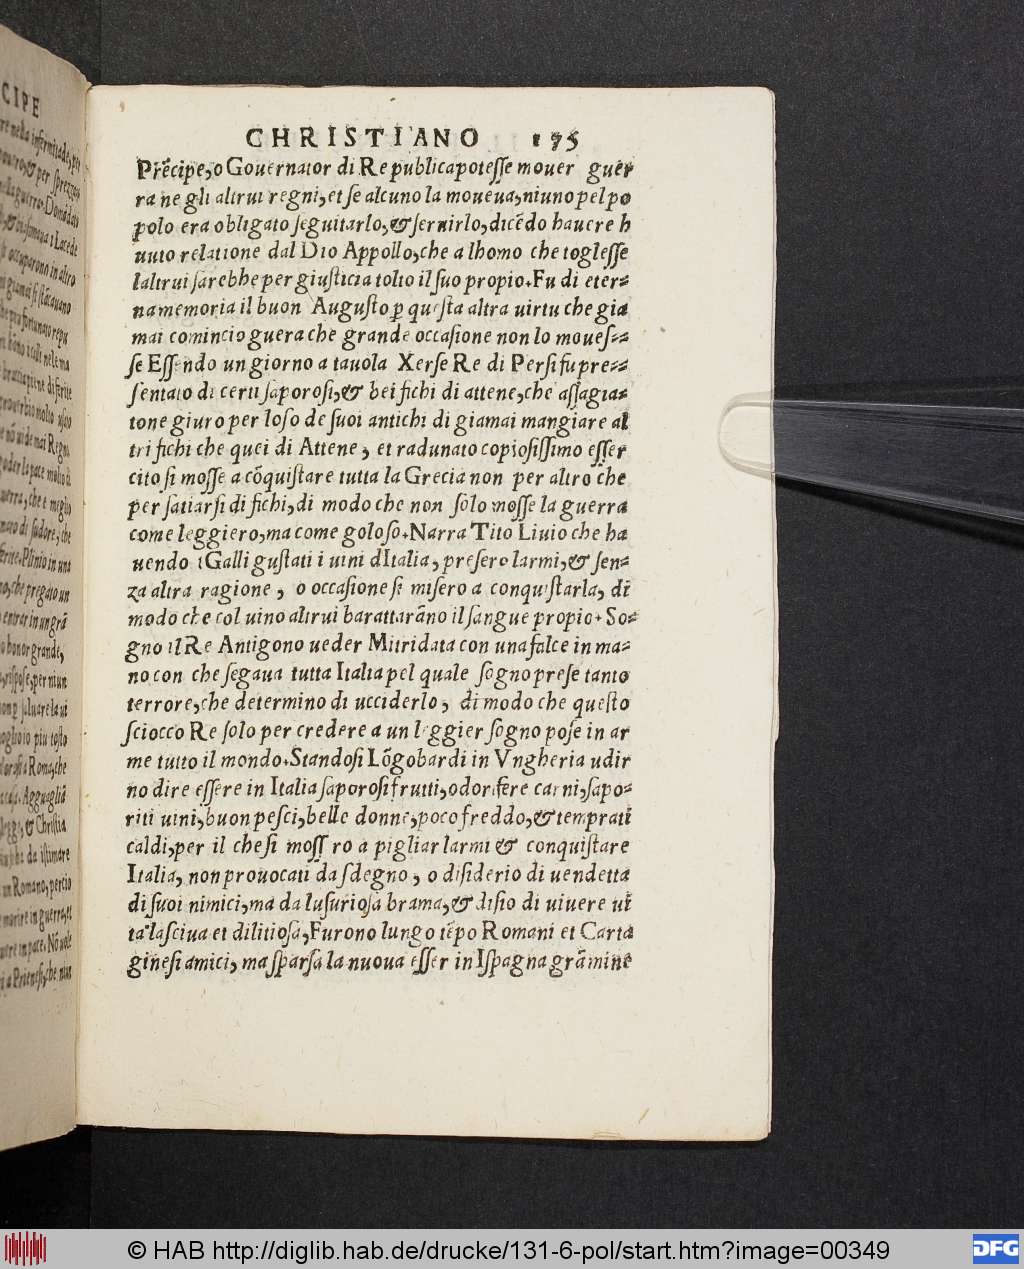 CIPE
CHRISTIANO 175
Prēcipe, o Gouernator di Republica potesse mouer guer
ra ne gli altrui regni, et se alcuno la moueua, niuno pel po
polo era obligato seguitarlo, & seruirlo, dicēdo hauere h
uuto relatione dal Dio Appollo, che a lhomo che toglesse
laltrui sarebbe per giusticia tolto il suo propio. Fu di eter=
na memoria il buon Augusto ꝑ questa altra uirtu che gia
mai comincio guera che grande occasione non lo moues==
se Essendo un giorno a tauola Xerse Re di Persi fu pre==
sentato di certi saporosi, & bei fichi di attene, che assagia=
tone giuro per loso de suoi antichi di giamai mangiare al
tri fichi che quei di Attene, et radunato copiosissimo esser
cito si mosse a cōquistare tutta la Grecia non per altro che
per satiarsi di fichi, di modo che non solo mosse la guerra
come leggiero, ma come goloso. Narra Tito Liuio che ha
uendo i Galli gustati i uini dItalia, presero larmi, & sen=
za altra ragione, o occasione si misero a conquistarla, di
modo che col uino altrui barattarāno il sangue propio. So=
gno il Re Antigono ueder Mitridata con una falce in ma=
no con che segaua tutta Italia pel quale sogno prese tanto
terrore, che determino di ucciderlo, di modo che questo
sciocco Re solo per credere a un leggier sogno pose in ar
me tutto il mondo. Standosi Lōgobardi in Vngheria udir
no dire essere in Italia saporosi frutti, odorifere carni, sapo=
riti uini, buon pesci, belle donne, poco freddo, & temprati
caldi, per il che si moss ro a pigliar larmi & conquistare
Italia, non prouocati da sdegno, o disiderio di uendetta
di suoi nimici, ma da lusuriosa brama, & disio di uiuere ui
ta lasciua et dilitiosa, Furono lungo tēpo Romani et Carta
ginesi amici, ma sparsa la nuoua esser in Ispagna grā mine
© HAB http://diglib.hab.de/drucke/131-6-pol/start.htm?image=00349
DFG